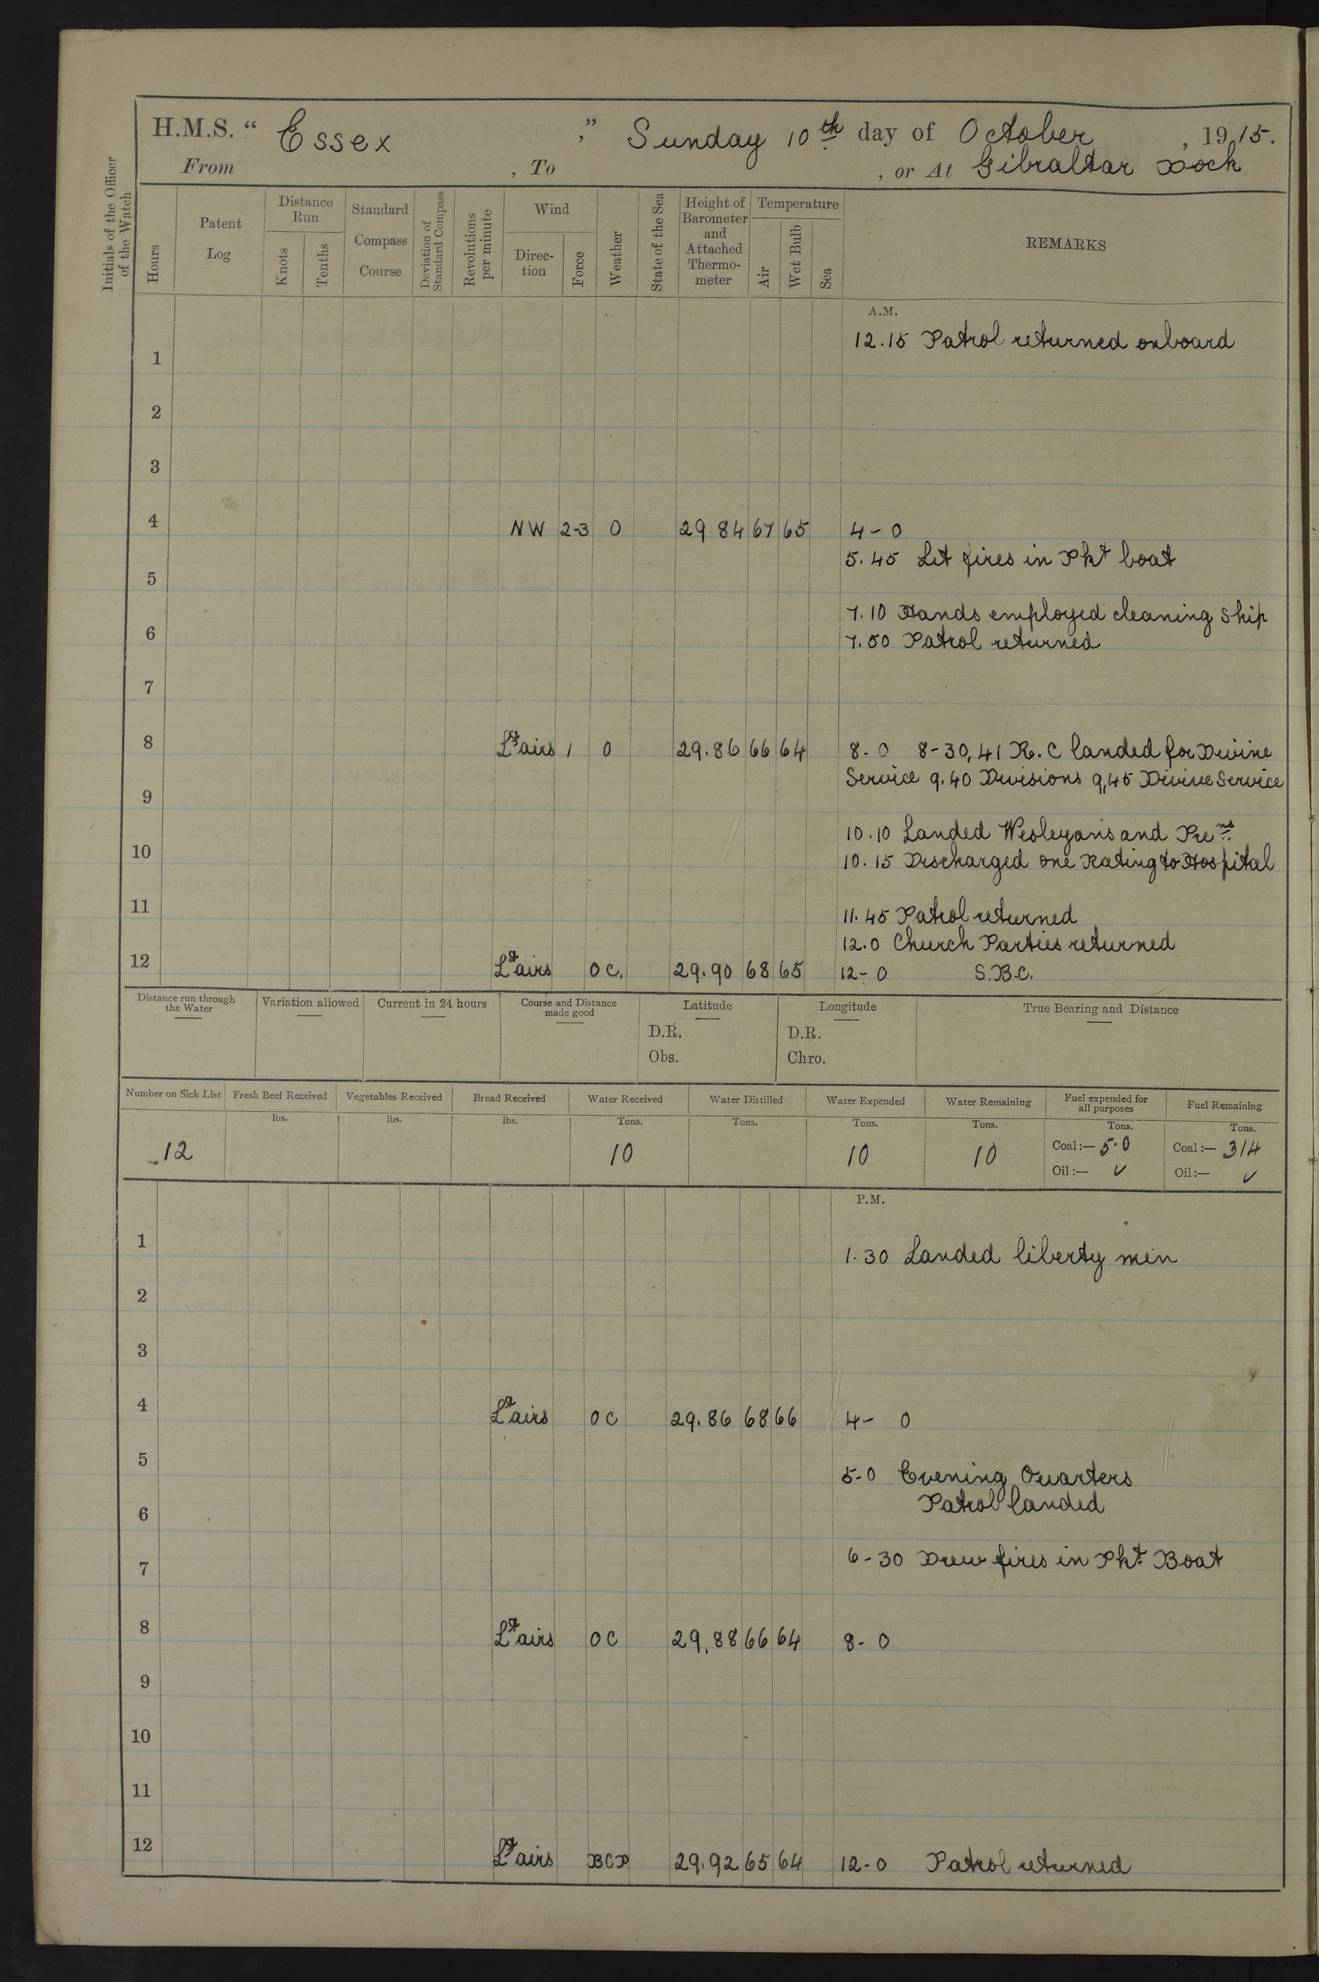 H.M.S. “ Essex ,” Sunday 10th day of October , 1915.
From , To , or At Gibraltar Dock
Initials of the Officer of the Watch
Hours
Patent Log
Distance Run
Knots
Tenths
Standard Compass Course
Deviation of Standard Compass
Revolutions per minute
Wind
Direction
Force
Weather
State of the Sea
Height of Barometer and Attached Thermometer
Temperature
Air
Wet Bulb
Sea
REMARKS
A.M.
12.15 Patrol returned onboard
1
2
3
4 NW 2-3 O 29.84 67 65 4-0
5.45 Lit fires in Pkt boat
5
7.10 Hands employed cleaning ship
6
7.50 Patrol returned
7
8 Lt airs 1 O 29.86 66 64 8.0 8-30, 41 R.C landed for Divine
Service 9.40 Divisions 9,45 Divine Service
9
10.10 Landed Wesleyans and Prens
10
10.15 Discharged one Rating to Hospital
11
11.45 Patrol returned
12.0 Church Parties returned
12 Lt airs O C. 29.90 68 65 12-0 S.B.C.
Distance run through the Water
Variation allowed
Current in 24 hours
Course and Distance made good
Latitude
D.R.
Obs.
Longitude
D.R.
Chro.
True Bearing and Distance
Number on Sick List
Fresh Beef Received
Vegetables Received
Bread Received
Water Received
Water Distilled
Water Expended
Water Remaining
Fuel expended for all purposes
Fuel Remaining
lbs. lbs. lbs. Tons. Tons. Tons. Tons. Tons. Tons.
12 10 10 10 Coal:— 5.0 Coal:— 314
Oil:— ✓ Oil:— ✓
P.M.
1
1.30 Landed liberty men
2
3
4 Lt airs O C 29.86 68 66 4- 0
5
5-0 Evening Quarters
Patrol landed
6
6-30 Drew fires in Pkt. Boat
7
8 Lt airs O C 29.88 66 64 8-0
9
10
11
12 Lt airs BCP 29.92 65 64 12-0 Patrol returned